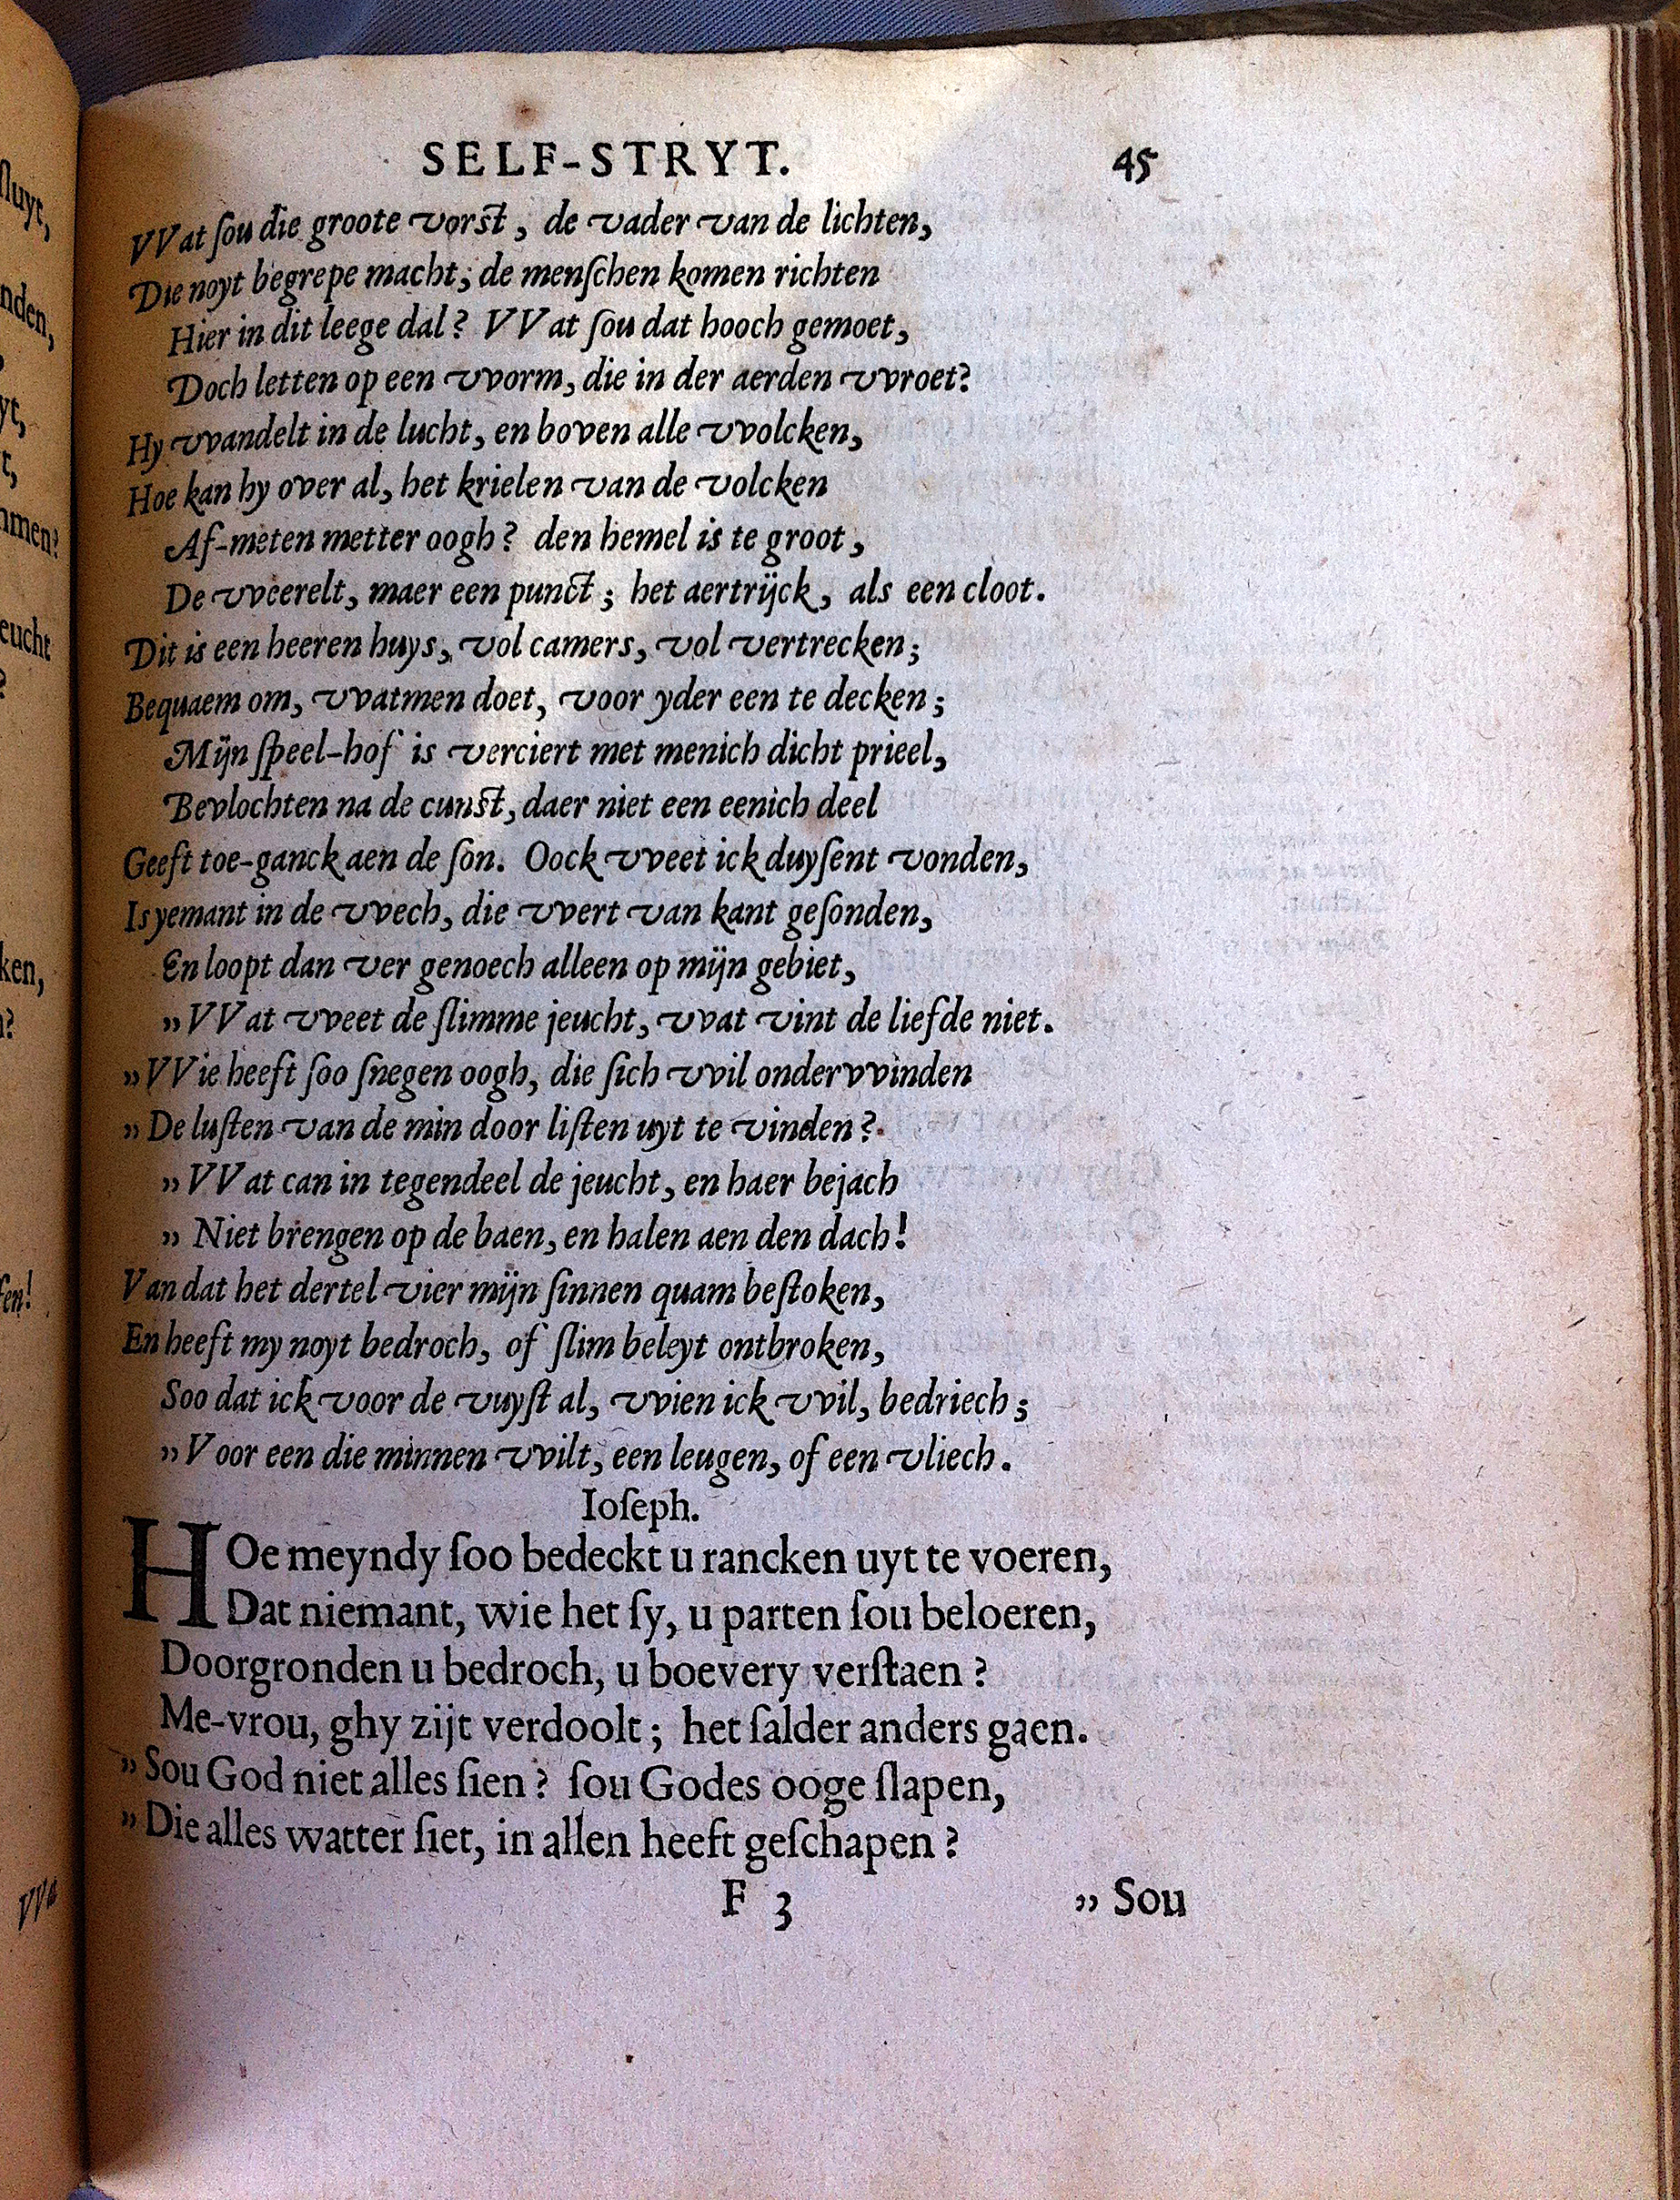 SELF-STRYT. 45
VVat ſou die groote vorst, de vader van de lichten,
Die noyt begrepe macht; de menſchen komen richten
Hier in dit leege dal? VVat ſou dat hooch gemoet,
Doch letten op een vvorm, die in der aerden vvroet?
Hy vvandelt in de lucht, en boven alle vvolcken,
Hoe kan hy over al, het krielen van de volcken
Af-meten metter oogh? den hemel is te groot,
De vveerelt, maer een punct; het aertrijck, als een cloot.
Dit is een heeren huys, vol camers, vol vertrecken;
Bequaem om, vvatmen doet, voor yder een te decken;
Mijn ſpeel-hof is verciert met menich dicht prieel,
Bevlochten na de cunst, daer niet een eenich deel
Geeft toe-ganck aen de ſon. Oock vveet ick duyſent vonden,
Is yemant in de vvech, die vvert van kant geſonden,
En loopt dan ver genoech alleen op mijn gebiet,
„VVat vveet de ſlimme jeucht, vvat vint de liefde niet.
„VVie heeft ſoo ſnegen oogh, die ſich vvil ondervvinden
„De luſten van de min door liſten uyt te vinden?
„VVat can in tegendeel de jeucht, en haer bejach
„Niet brengen op de baen, en halen aen den dach!
Van dat het dertel vier mijn ſinnen quam beſtoken,
En heeft my noyt bedroch, of ſlim beleyt ontbroken,
Soo dat ick voor de vuyſt al, vvien ick vvil, bedriech;
„Voor een die minnen vvilt, een leugen, of een vliech.
Ioſeph.
HOe meyndy ſoo bedeckt u rancken uyt te voeren,
Dat niemant, wie het ſy, u parten ſou beloeren,
Doorgronden u bedroch, u boevery verſtaen?
Me-vrou, ghy zijt verdoolt; het ſalder anders gaen.
„Sou God niet alles ſien? ſou Godes ooge ſlapen,
„Die alles watter ſiet, in allen heeft geſchapen?
F 3 „Sou